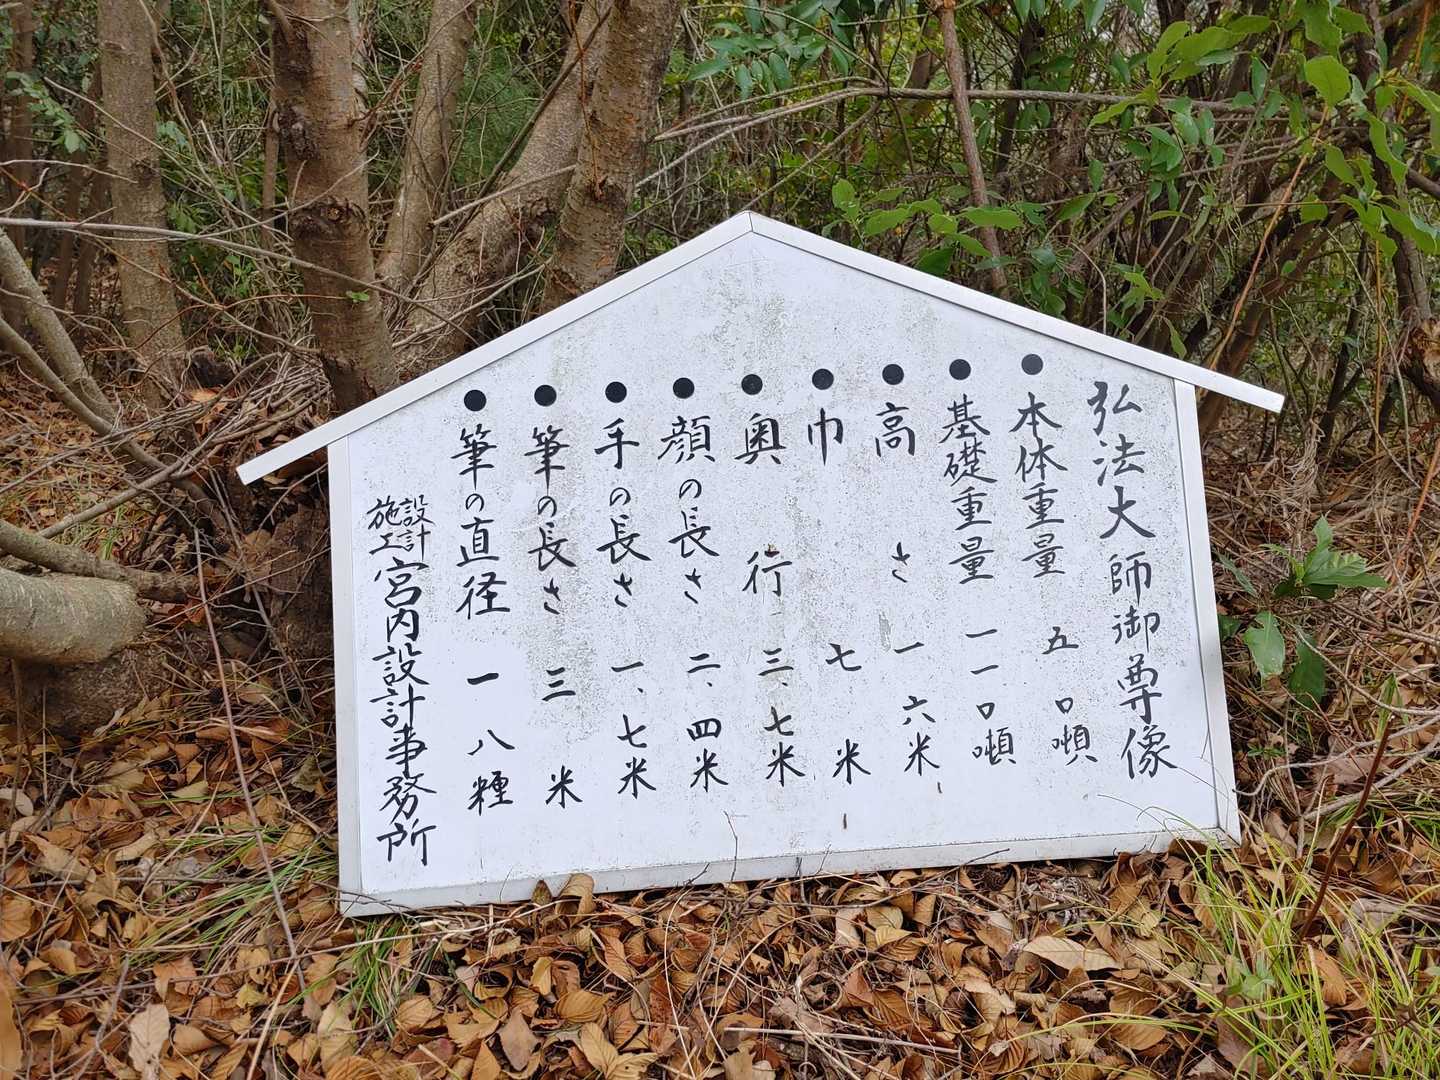 弘法大師御尊像
●本体重量 五〇噸
●基礎重量 一一〇噸
●高さ 一六米
●巾 七米
●奥行 三、七米
●顔の長さ 二、四米
●手の長さ 一、七米
●筆の長さ 三米
●筆の直径 一八糎
設計
施工
宮内設計事務所